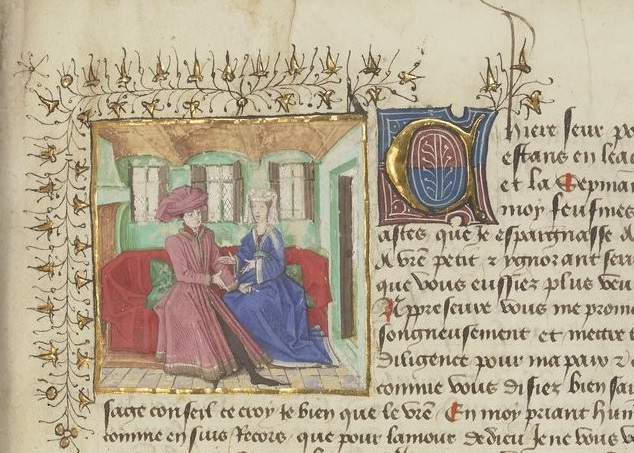 Chiere seur po
estans en lea
et la Sepmai
moy feusmes
astes que Je espargnasse A
A vre petit & ygnorant serv
que vous eussiez plus veu
vous me prome
songneusement et mettre
diligence pour ma paix &
comme vous disiez bien sai
sage conseil ce croy Je bien que le vre En moy priant hum
comme en suis Recors que pour lamour de dieu Je ne vous v